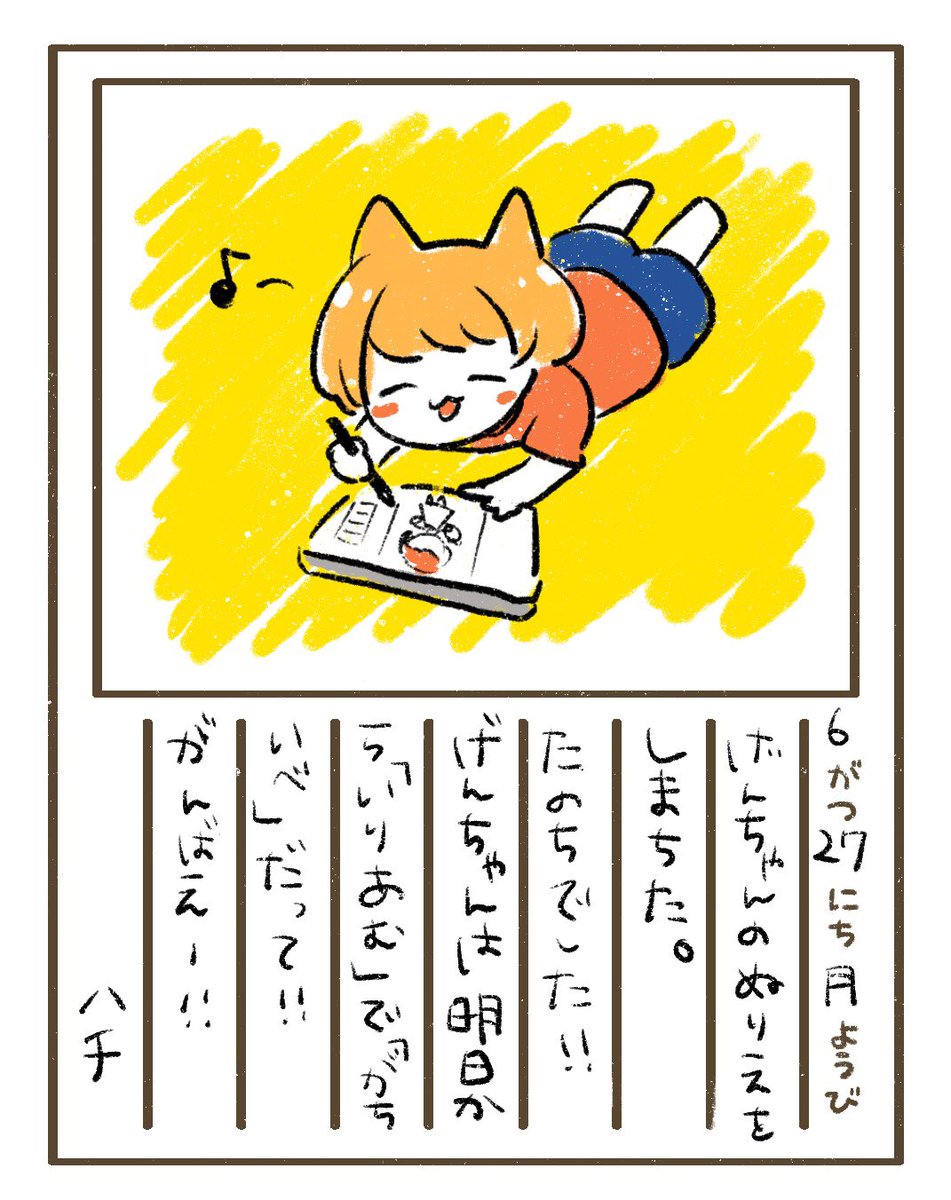 6がつ27にち月ようび
げんちゃんのぬりえを
しまちた。
たのちでした!!
げんちゃんは明日か
ら「いりあむ」で「がち
いべ」だって!!
がんばえー!!
ハチ